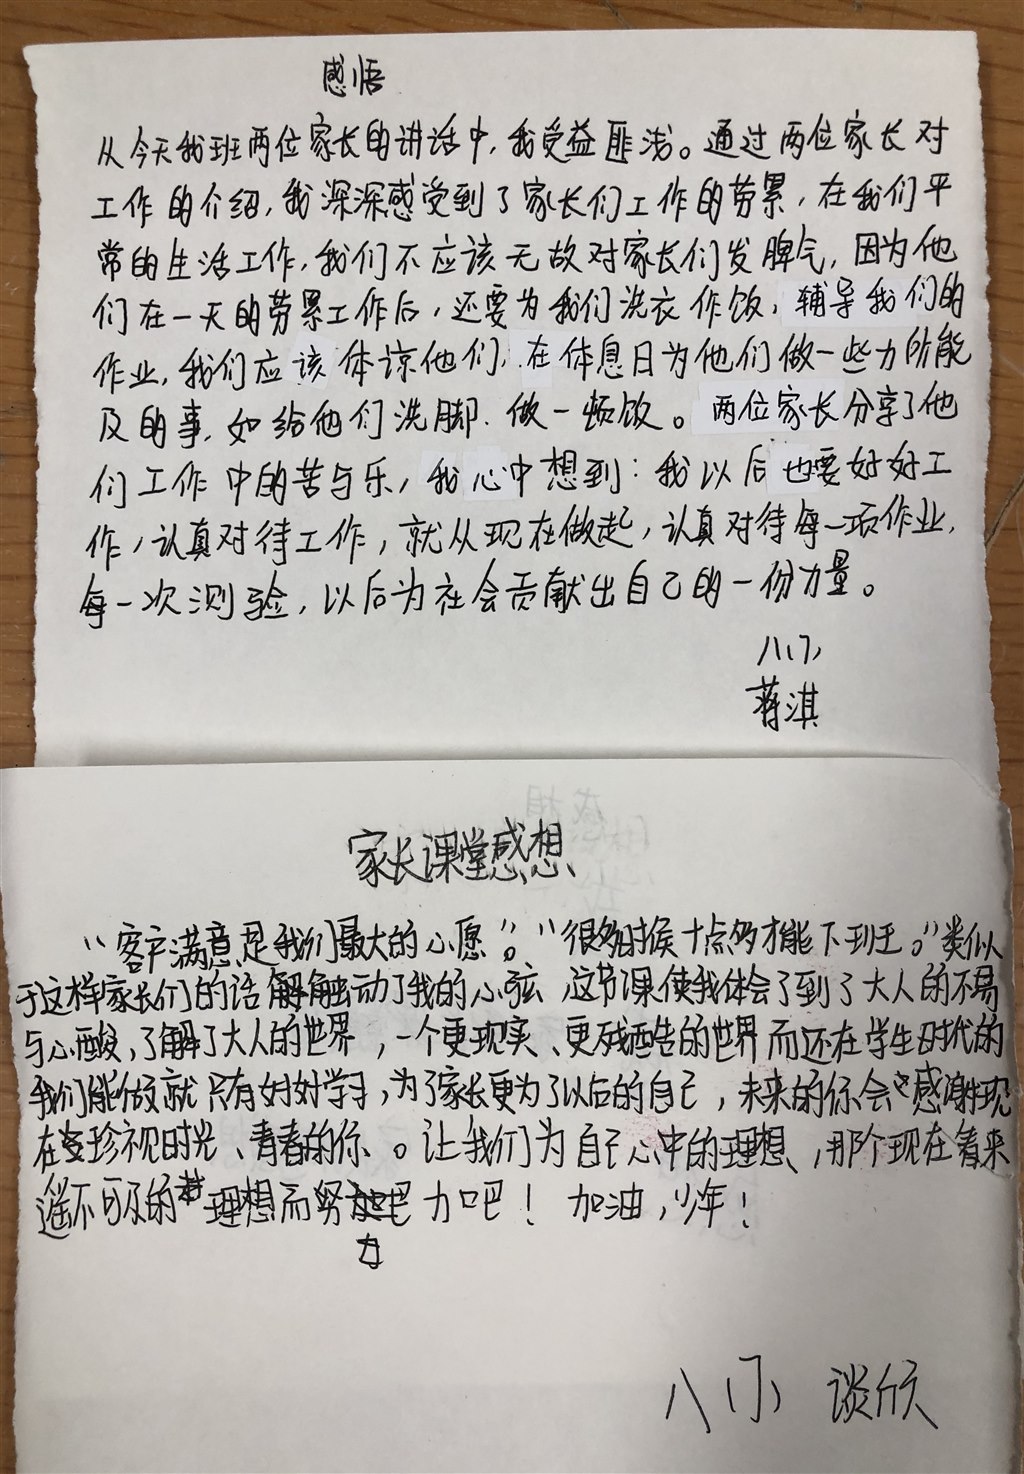 感悟
从今天我班两位家长的讲话中，我受益匪浅。通过两位家长对
工作的介绍，我深深感受到了家长们工作的劳累，在我们平
常的生活工作，我们不应该无故对家长们发脾气，因为他
们在一天的劳累工作后，还要为我们洗衣作饭，辅导我们的
作业，我们应该体谅他们，在休息日为他们做一些力所能
及的事，如给他们洗脚、做一顿饭。两位家长分享了他
们工作中的苦与乐，我心中想到：我以后也要好好工
作，认真对待工作，就从现在做起，认真对待每一项作业，
每一次测验，以后为社会贡献出自己的一份力量。
蒋淇
家长课堂感想
“客户满意是我们最大的心愿”。“很多时候十点多才能下班。”类似
于这样家长们的话触动了我的心弦，这节课使我体会了到了大人的不易
与心酸，了解了大人的世界，一个更现实、更残酷的世界而还在学生时代的
我们能做就只有好好学习，为了家长更为了以后的自己，未来的你会感谢现
在珍视时光、青春的你。让我们为自己心中的理想、那个现在看来
遥不可及的理想而努力吧！加油，少年！
八 谈欣